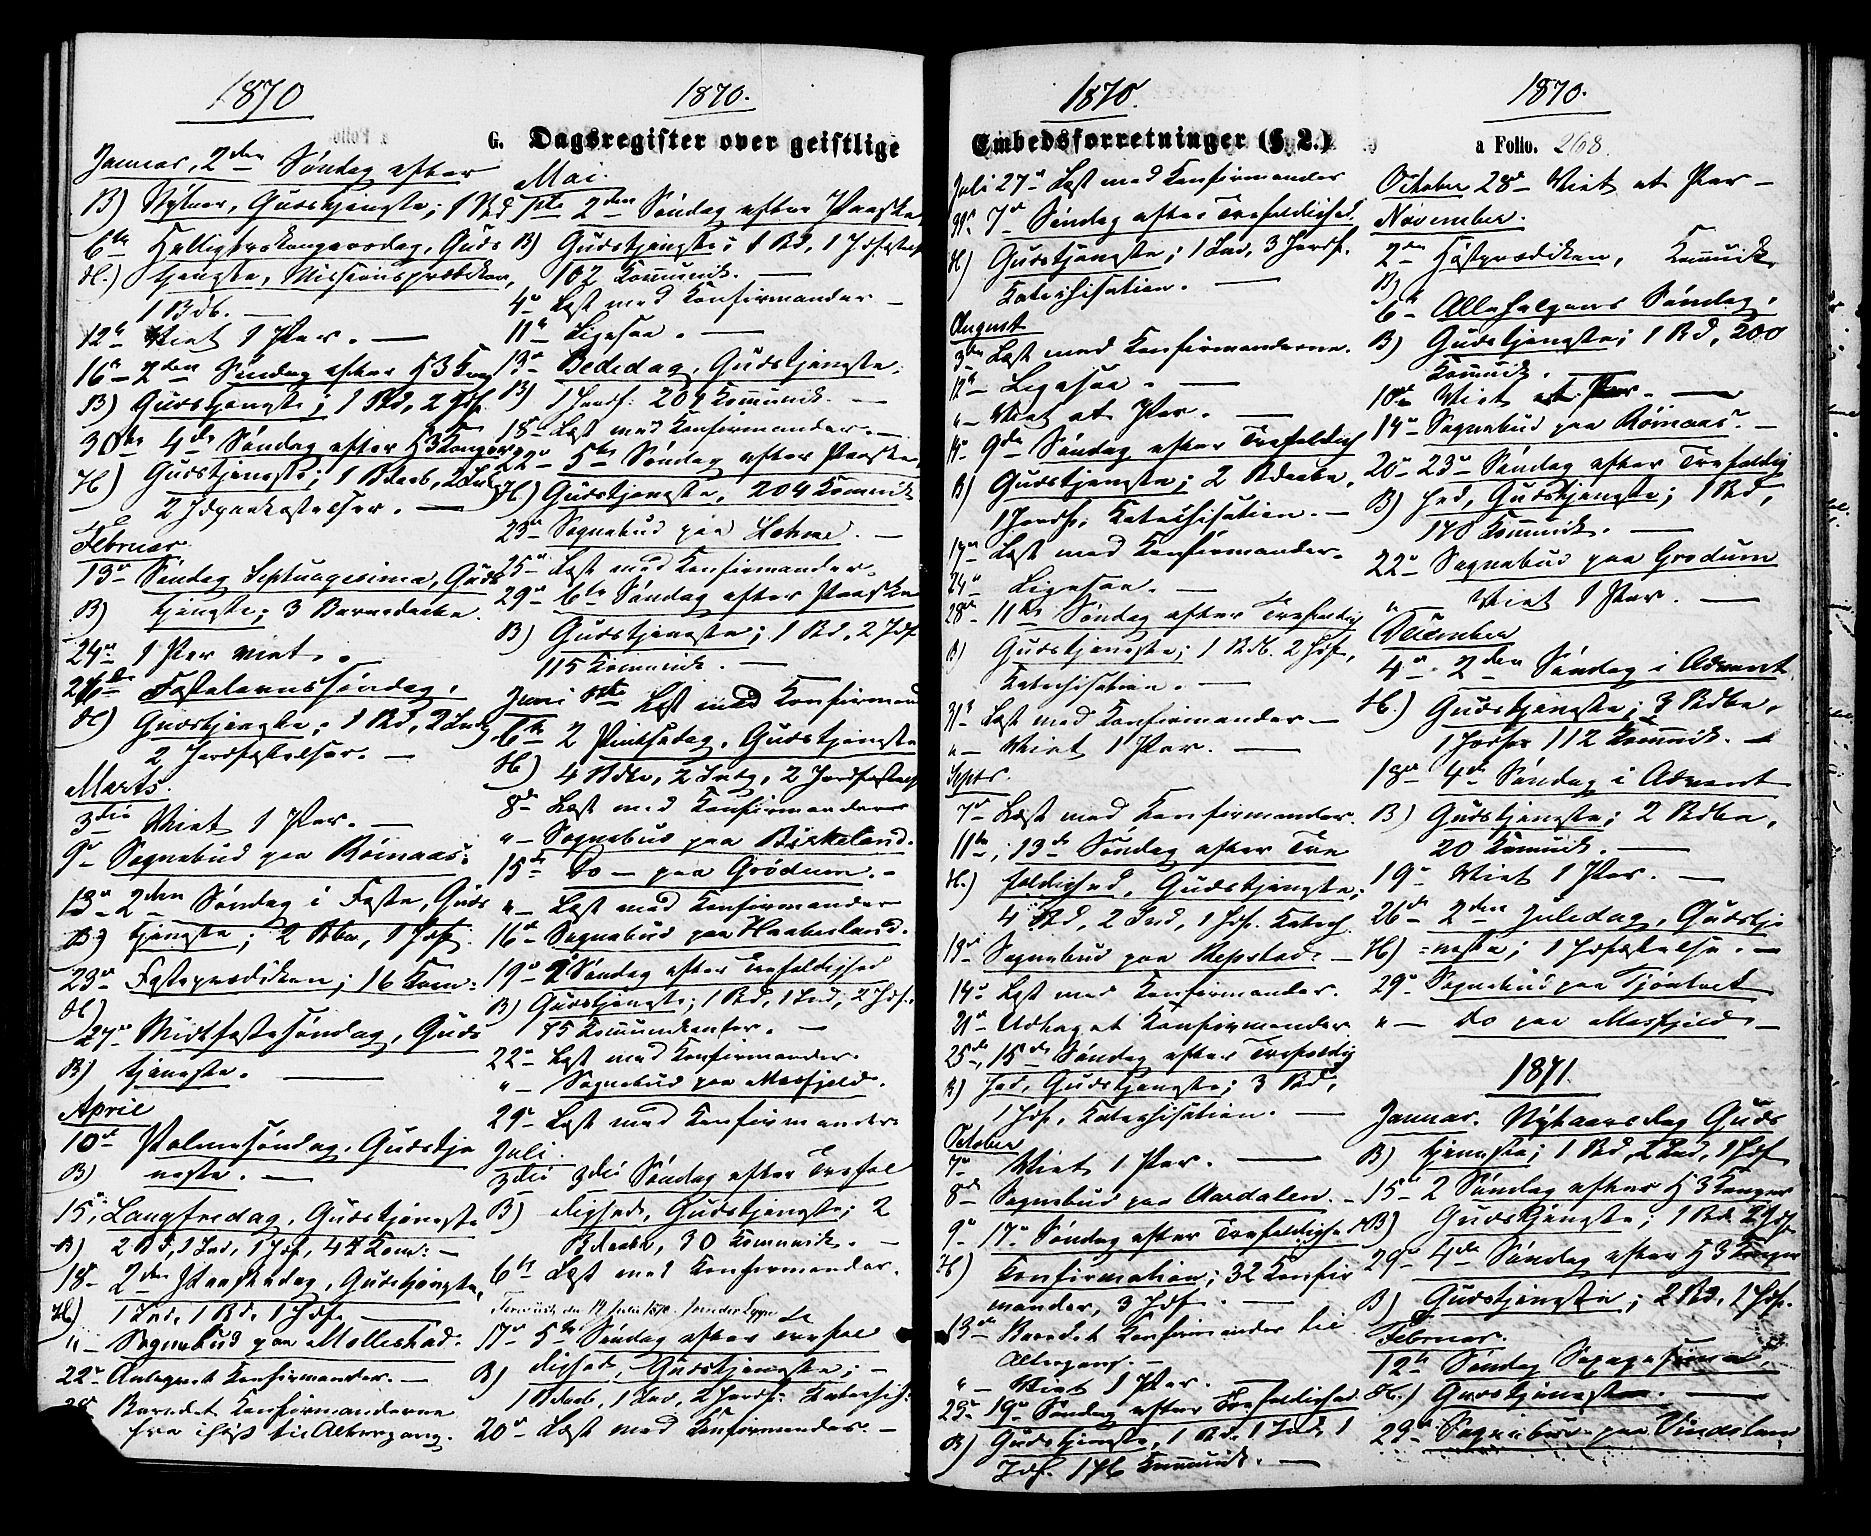 1870
1870.
G. Dagsregister over geistlige
Januar, 2den Søndag efter
B) Nytaar, Gudstjeneste; 1 Bd
6te Helligtrekongersdag, Guds
H.) tjeneste, Missionsprædiken,
1 Bdb. —
12te Viet 1 Par. —
16de 2den Søndag efter H3Kong
B) Gudstjeneste; 1 Bd, 2 Jdf.
30te 4de Søndag efter H3Konger
H) Gudstjeneste; 1 Bdaab, 2 Ind
2 Jordpaakastelser. —
Februar
13de Søndag Septuagesima, Guds
B) tjeneste; 3 Barnedaabe.
24de 1 Par viet.
27de Fastelavnssøndag,
H) Gudstjeneste; 1 Bd, 2 Indg
2 Jordfæstelser. —
Marts.
3die Viet 1 Par. —
9de Sognebud paa Rømaas:
13de 2den Søndag i Faste, Guds
B) tjeneste; 2 Bba, 1 Jdf.
23de Fasteprædiken; 16 Kom:
H)
27de Midtfastesøndag, Guds
B) tjeneste. —
April
10de Palmesøndag, Gudstje
B) neste. —
15de Langfredag, Gudstjeneste
B) 2 Bd, 1 Ind, 1 Jdf, 44 Kom: —
18de 2den Paaskedag, Gudstjeneste,
H) 1 Ind, 1 Bd, 1 Jdf. —
" — Sognebud paa Mollestad.
22de Antegnet Konfirmander. —
Beredet Konfirmanderne
fra ifjor til Altergang.
Mai.
1ste 2den Søndag efter Paaske
B) Gudstjeneste; 1 Bd, 1 Jdfæstel
102 Kommunik. —
4de Læst med Konfirmander —
11te Ligesaa. —
13de Bededag, Gudstjeneste,
B) 1 Jordf: 209 Kommunik. —
18de Læst med Konfirmander. —
22de 5te Søndag efter Paaske,
H) Gudstjeneste, 204 Kommunik
23de Sognebud paa —
25de Læst med Konfirmander.
29de 6te Søndag efter Paaske
B) Gudstjeneste; 1 Bd, 2 Jdf
115 Kommunik. —
Juni 1ste Læst med Konfirmand
6te 2 Pintsedag, Gudstjeneste
H) 4 Bdbe, 2 Indg, 2 Jordfæstels
8de Læst med Konfirmanderne
" — Sognebud paa Birkeland.
15de Do — paa Grødum. —
" — Læst med Konfirmander
16de Sognebud paa Haaberland.
19de 2 Søndag efter Trefoldighed
B) Gudstjeneste; 1 Bd, 1 Ind, 2 Jdf.
75 Kommunikanter. —
22de Læst med Konfirmander.
" — Sognebud paa Mosfjeld.
29de Læst med Konfirmander
Juli.
3die 3die Søndag efter Trefol
B) dighed, Gudstjeneste; 2
Bdaabe, 30 Kommunik. —
6te Læst med Konfirmander.
17de 5te Søndag efter Trefol
B) dighed, Gudstjeneste; —
1 Bdaab, 1 Ind, 2 Jordf: Katechis:
20de Læst med Konfirmander. —
1870.
1870.
Embedsforretninger (§ 2.)
a Folio. 268.
Juli 27de Læst med Konfirmander
7de Søndag efter Trefoldighed.
H) Gudstjeneste; 1 Ind, 3 Jordf.
Katechisation. —
August
3die Læst med Konfirmanderne.
12te Ligesaa. —
" — Viet et Par. —
14de 9de Søndag efter Trefoldigh
B) Gudstjeneste; 2 Bdaabe,
1 Jordf: Katechisation. —
17de Læst med Konfirmander.
24de Ligesaa. —
28de 11te Søndag efter Trefoldig
B) Gudstjeneste; 1 Bdb. 2 Jdf,
Katechisation. —
31te Læst med Konfirmander —
" — Viet 1 Par. —
Septr.
7de Læst med Konfirmander.
11te, 13de Søndag efter Tre
H.) foldighed, Gudstjeneste;
4 Bd, 2 Ind, 1 Jdf. Katech.
13de Sognebud paa Repstad. —
14de Læst med Konfirmander.
21de Udtaget Konfirmander.
25de, 15de Søndag efter Trefoldig
B) hed, Gudstjeneste; 3 Bd,
1 Jdf, Katechisation. —
October
7de Viet 1 Par. —
8de Sognebud paa Aardalen. —
9de 17de Søndag efter Trefoldighed
H) Konfirmation; 32 Konfir
mander, 3 Jdf. —
13de Beredet Konfirmander til
Altergang. —
" — Viet 1 Par. —
23de 19de Søndag efter Trefoldighed
B) Gudstjeneste, 1 Bd. 1 Ind, 1
Jdf. 176 Kommunik. —
October 28de Viet et Par —
November.
2den Høstprædiken, Kommunik
B)
6te Allehelgens Søndag,
B) Gudstjeneste; 1 Bd, 200
Kommunik. —
10de Viet et Par. —
14de Sognebud paa Rømaas. —
20de 23de Søndag efter Trefoldig
B) hed, Gudstjeneste; 1 Bd,
170 Kommunik. —
22de Sognebud paa Grødum
" — Viet 1 Par. —
December
4de 2den Søndag i Advent
H.) Gudstjeneste; 3 Bdbe,
1 Jordf: 112 Kommunik. —
18de 4de Søndag i Advent
B) Gudstjeneste; 2 Bdbe,
20 Kommunik. —
19de Viet 1 Par. —
26de 2den Juledag, Gudstje
H) =neste; 1 Jdfæstelse. —
29de Sognebud paa Tjøntvet
" — Do paa Mosfjeld. —
1871.
Januar. Nytaarsdag Guds
B) tjeneste; 1 Bd, 2 Ind, 1 Jdf
15de 2 Søndag efter H3Konger
B) Gudstjeneste; 1 Bd. 2 Jdf.
29de 4de Søndag efter H3Konger
B) Gudstjeneste; 2 Bd, 1 Jdf.
Februar.
12te Søndag Sexagesima.
H.) Gudstjeneste. —
23de Sognebud paa Vindslan